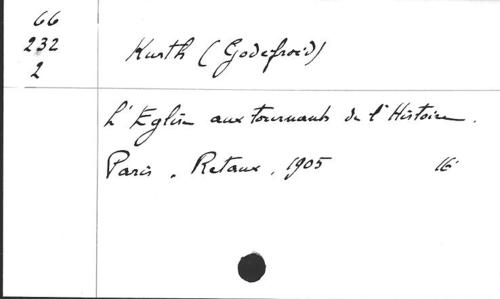 66
232
2
Kurth (Godefroid)
L'Eglise aux tournants de l'Histoire.
Paris. Retaux, 1905 16